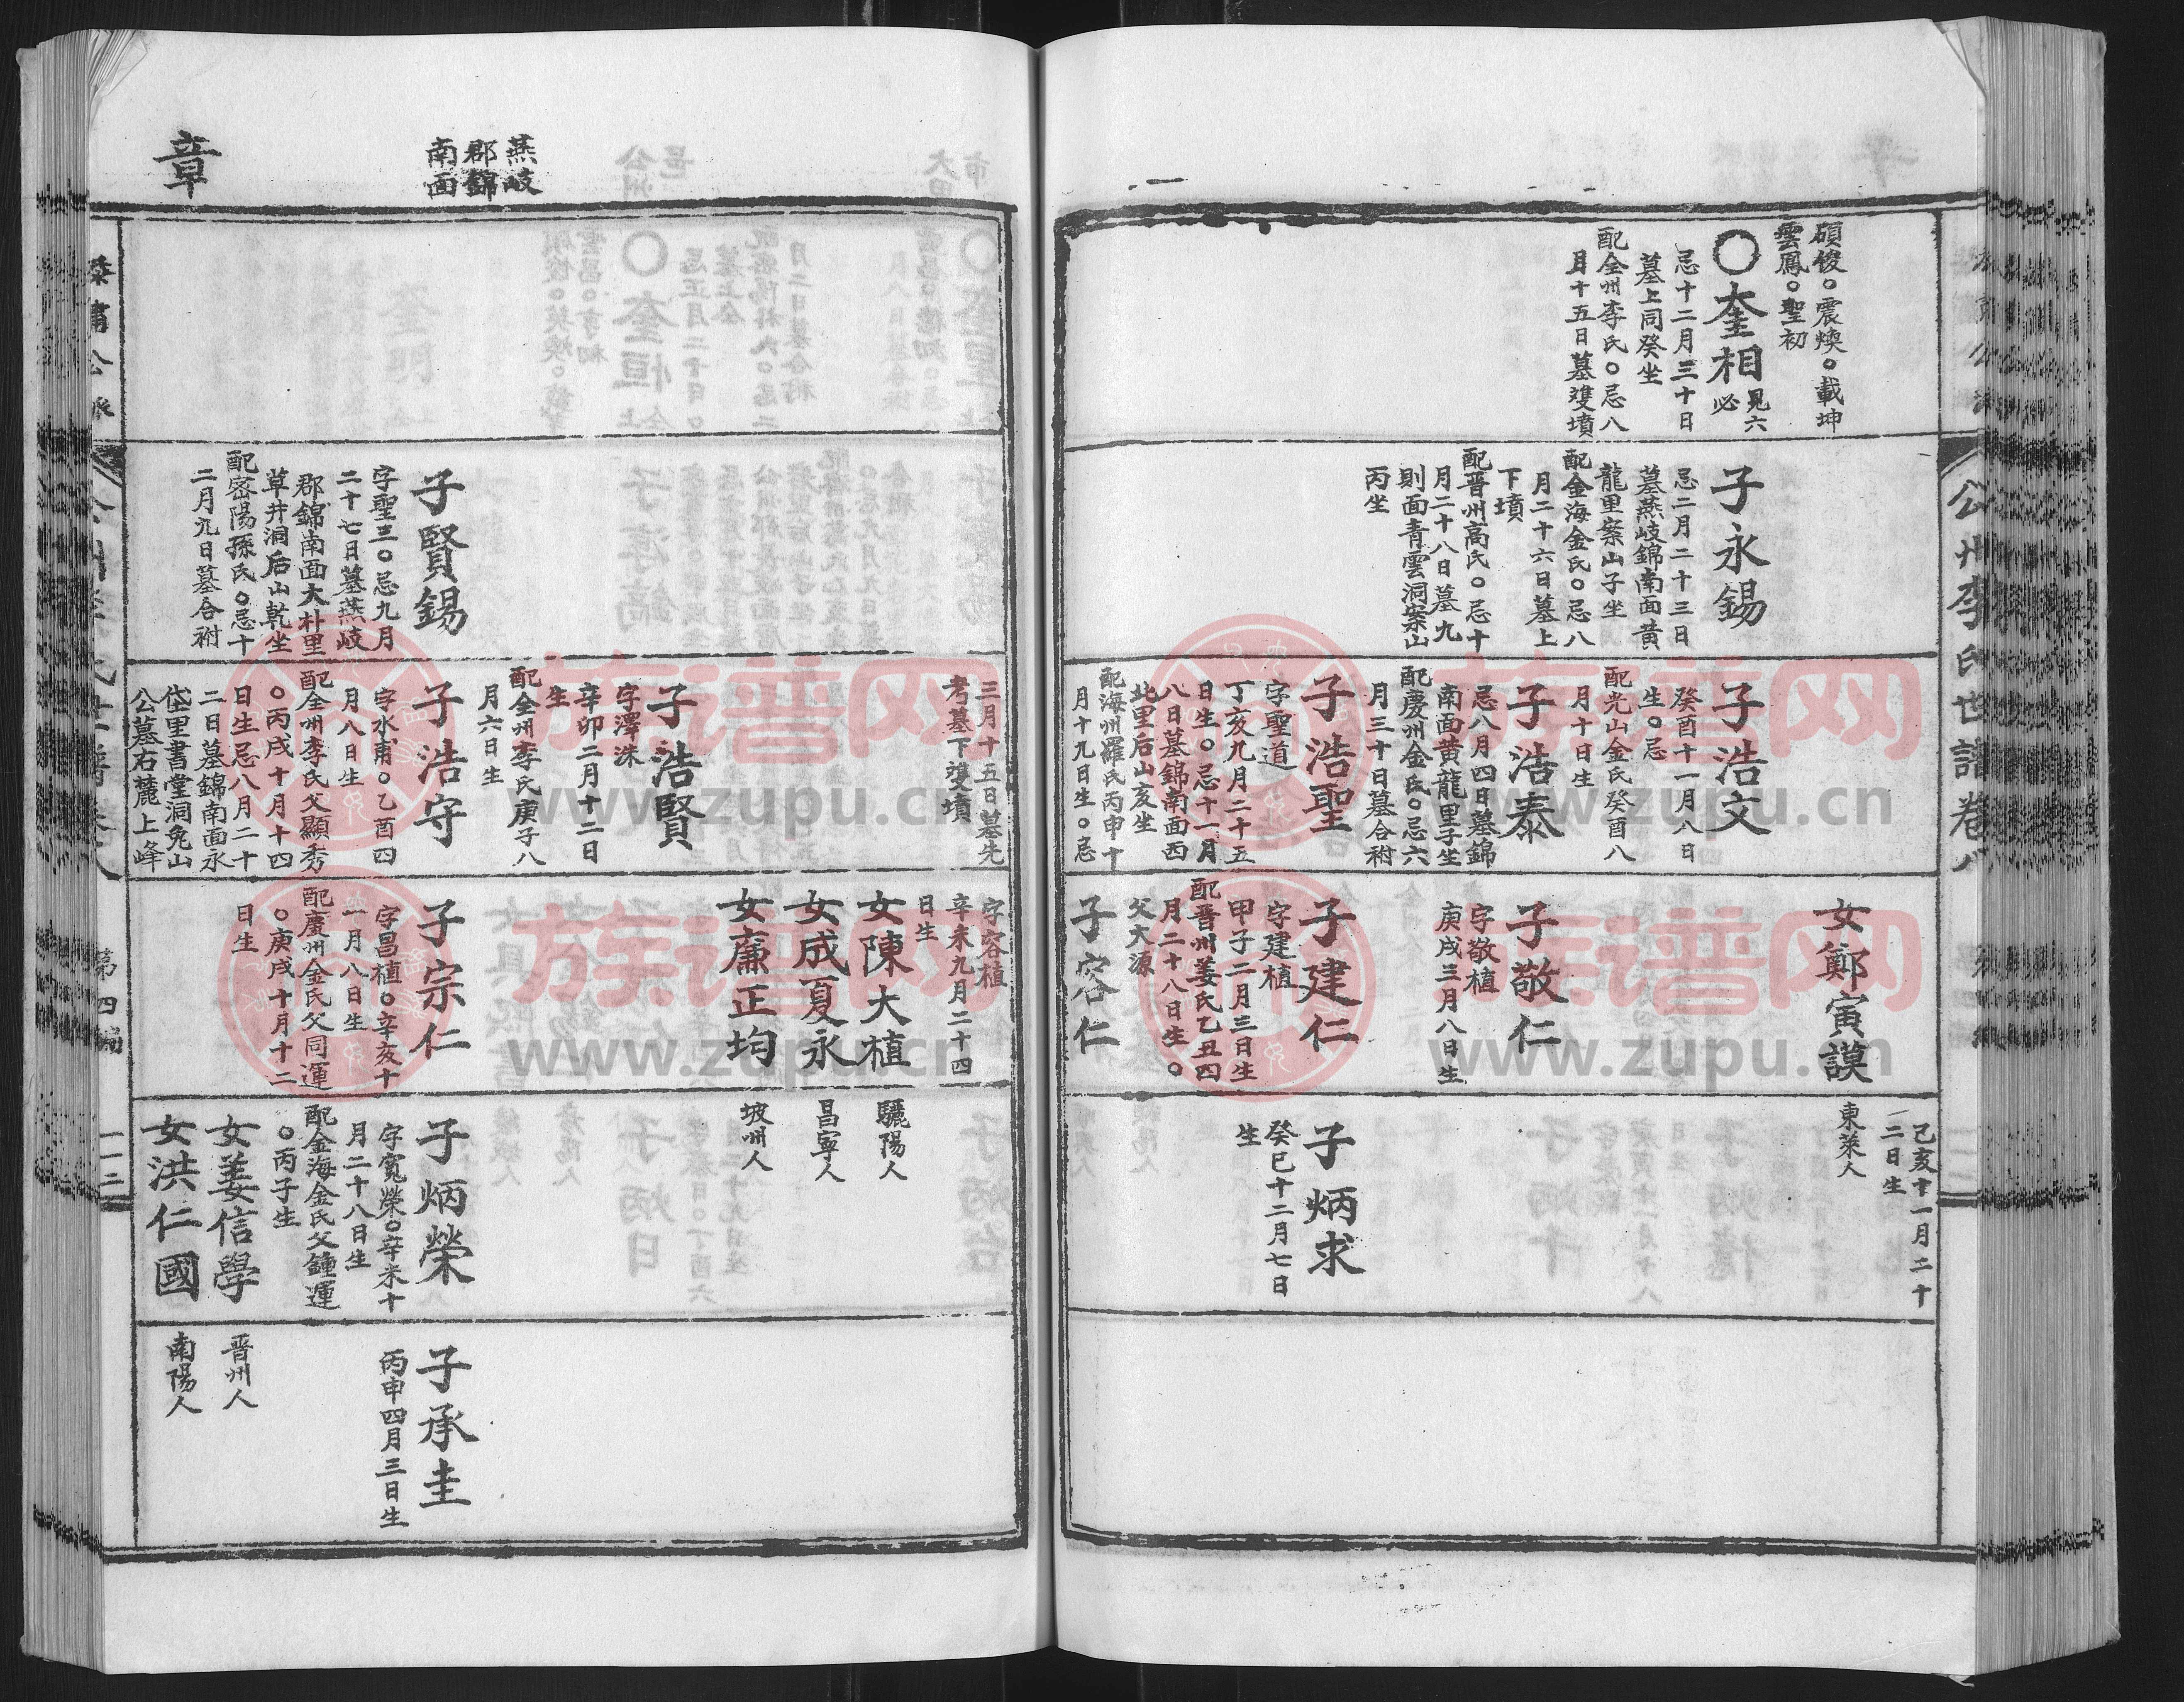 公州李氏世譜卷八
碩俊○震煥○載坤
雲鳳○聖初
○奎相
見六
必
忌十二月三十日
墓上同癸坐
配全州李氏○忌八
月十五日墓雙墳
子永錫
忌二月二十三日
墓燕岐錦南面黃
龍里案山子坐
配金海金氏○忌八
月二十六日墓上
下墳
配晋州高氏○忌十
月二十八日墓九
則面青雲洞案山
丙坐
子浩文
癸酉十一月八日
生○忌
配光山金氏癸酉八
月十日生
子浩泰
忌八月四日墓錦
南面黃龍里子坐
配慶州金氏○忌六
月三十日墓合祔
子浩聖
字聖道
丁亥九月二十五
日生○忌十一月
八日墓錦南面西
北里后山亥坐
配海州羅氏丙申十
月十九日生○忌
女鄭寅謨
子敬仁
字敬植
庚戌三月八日生
子建仁
字建植
甲子二月三日生
配晋州姜氏乙丑四
月二十八日生○
父大源
子容仁
己亥十一月二十
二日生
東萊人
子炳求
癸巳十二月七日
生
燕岐
郡錦
南面
章
子賢錫
字聖三○忌九月
二十七日墓燕岐
郡錦南面大朴里
草井洞后山乾坐
配密陽孫氏○忌十
二月九日墓合祔
三月十五日墓先
考墓下雙墳
子浩賢
字澤洙
辛卯二月十二日
生
配全州李氏庚子八
月六日生
子浩守
字水甫○乙酉四
月八日生
配全州李氏父顯秀
○丙戌十月十四
日生忌八月二十
二日墓錦南面永
岱里書堂洞兔山
公墓右麓上峰
字容植
辛未九月二十四
日生
女陳大植
女成夏永
女廉正均
子宗仁
字昌植○辛亥十
一月八日生
配慶州金氏父同運
○庚戌十月十二
日生
驪陽人
昌寧人
坡州人
子炳榮
字寬榮○辛未十
月二十八日生
配金海金氏父鍾運
○丙子生
女姜信學
女洪仁國
子承圭
丙申四月三日生
晋州人
南陽人
第四編
族谱网
www.zupu.cn
族谱网
www.zupu.cn
族谱网
www.zupu.cn
族谱网
www.zupu.cn